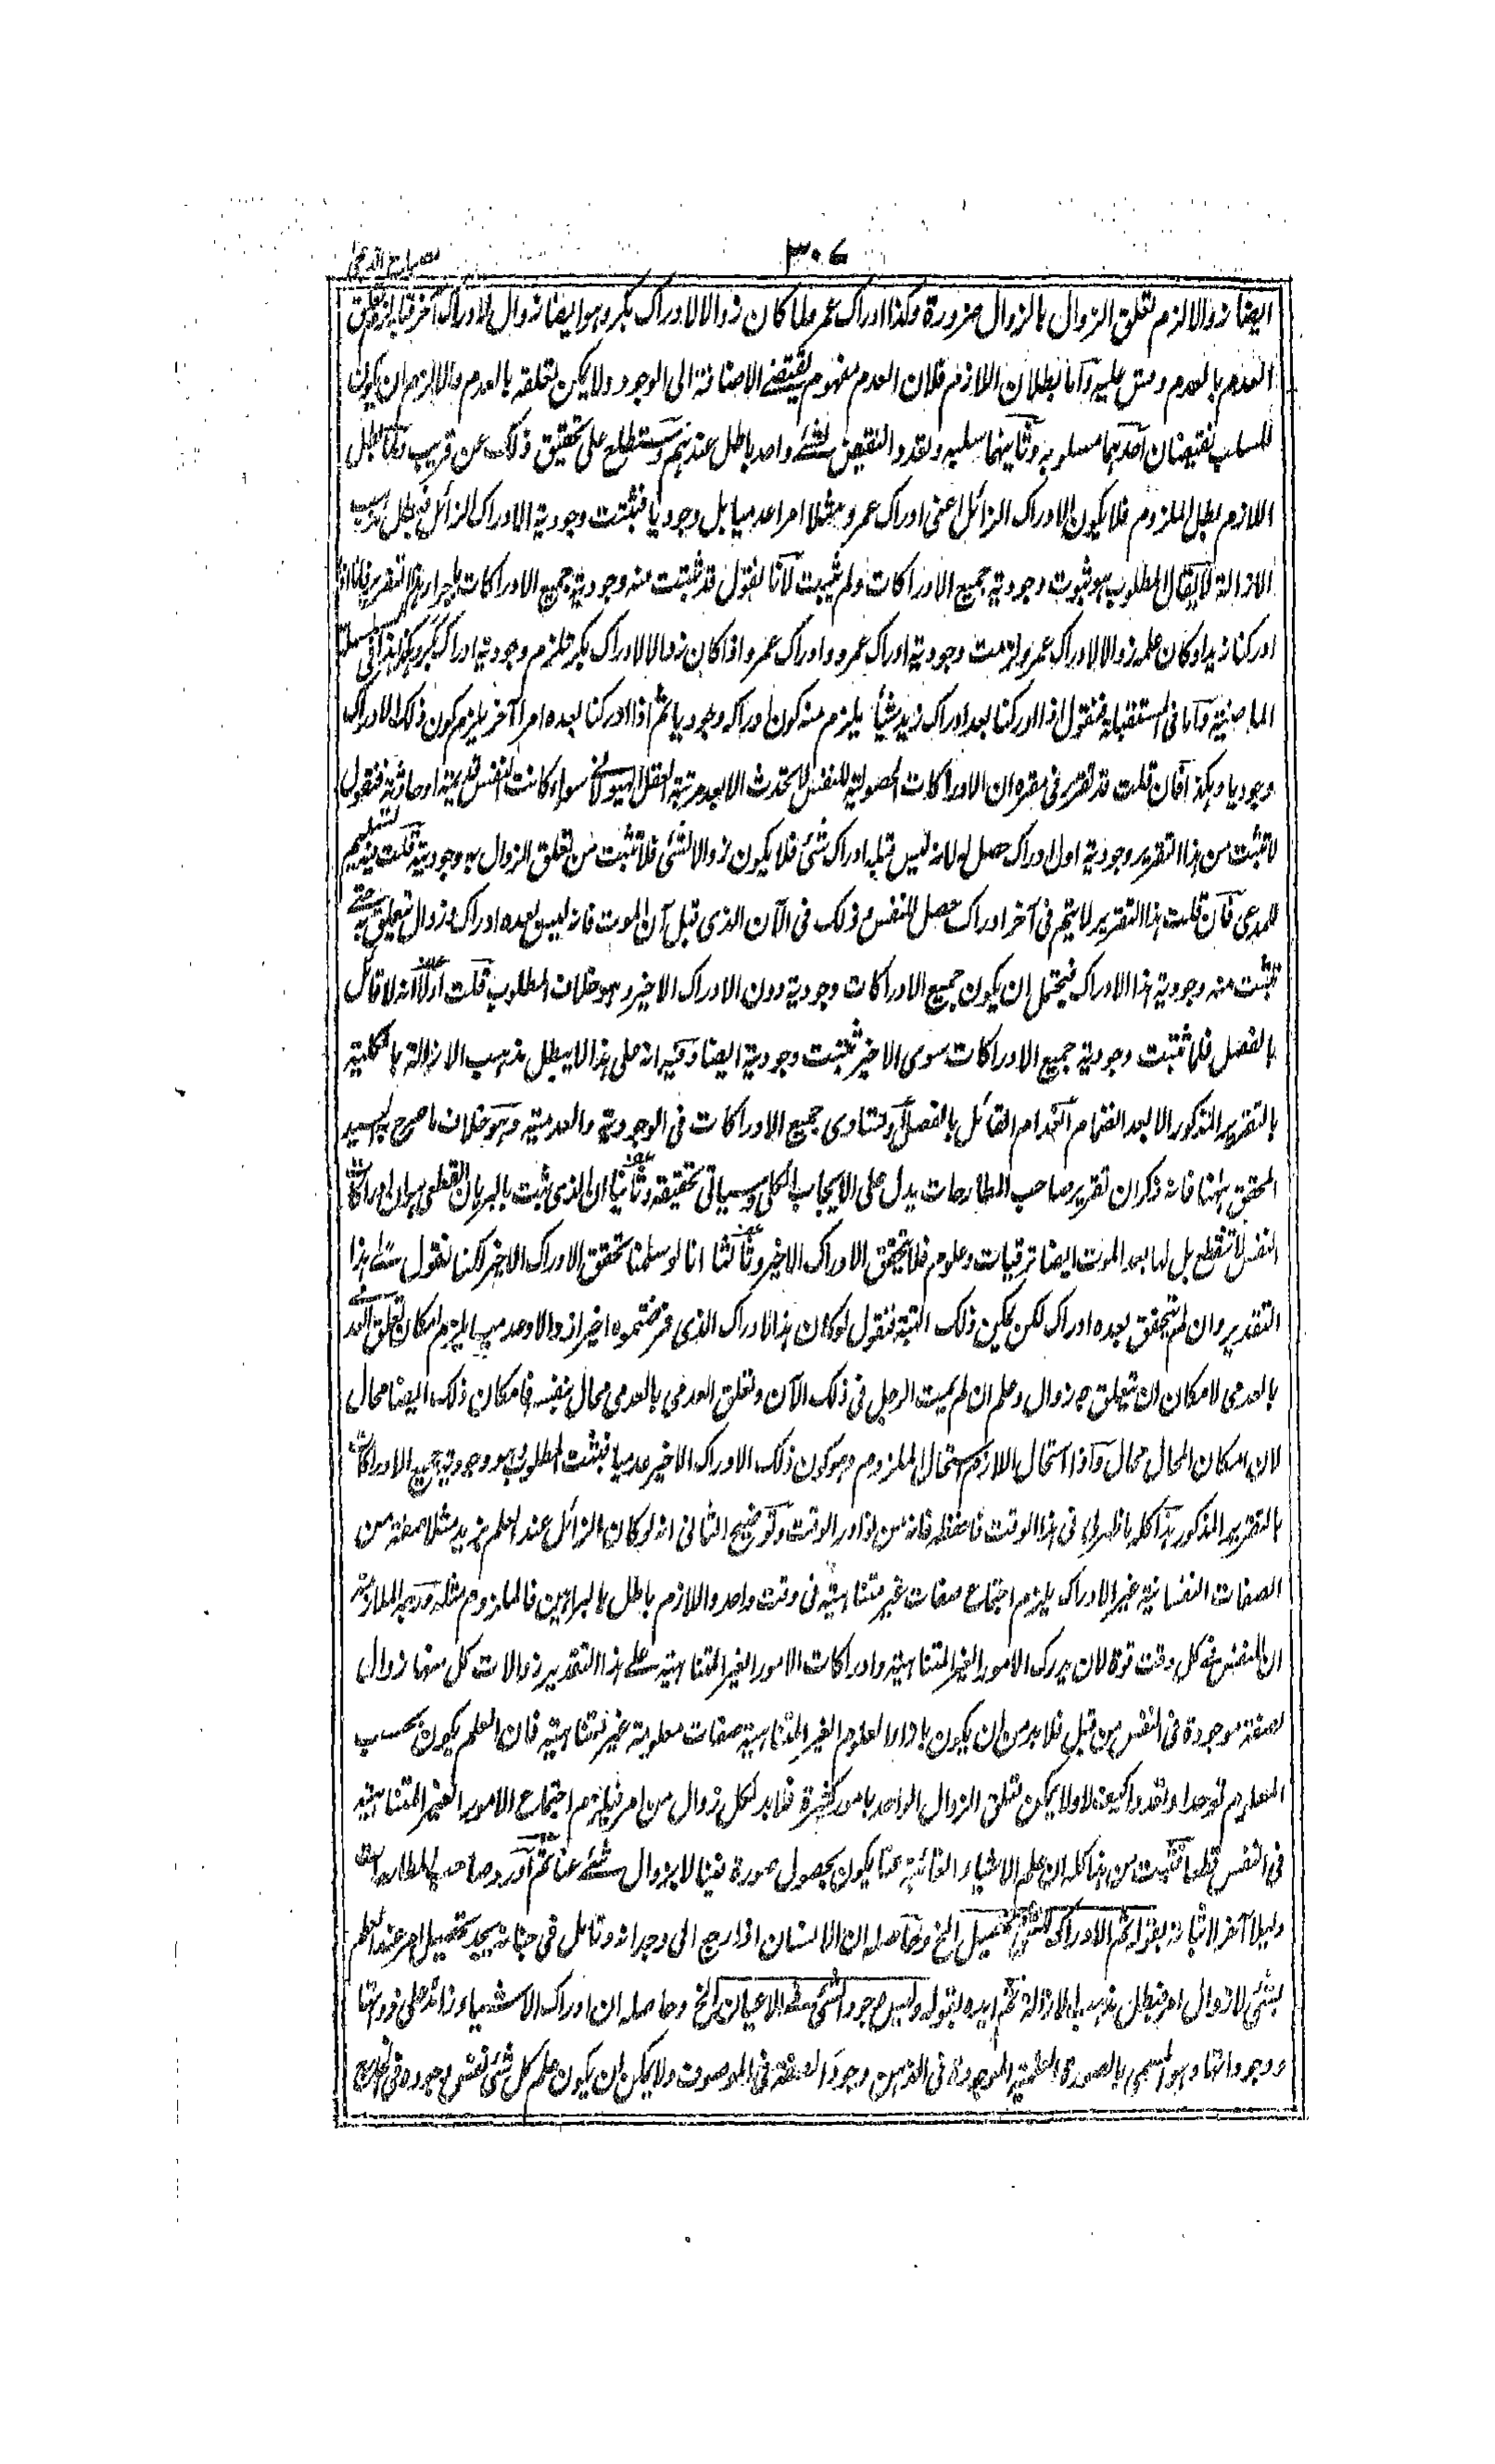 ٣٠٧
مصباح الدجى
ايضا زوالا لزم تعلق الزوال بالزوال ضرورة وكذا ادراك عمرو لما كان زوالا لادراك بكر وهو ايضا زوال لادراك آخر فيلزم تعلق
العدم بالعدم وقس عليه وآما بطلان اللازم فلان العدم مفهوم يقتضي الاضافة الى الوجود ولا يمكن تعلقه بالعدم والا لزم ان يكون
للسلب نقيضان آحدهما مسلوبه وثانيهما سلبه وتعدد النقيض لشئ واحد باطل عندهم وستطلع على تحقيق ذلك عن قريب ولما بطل
اللازم بطل الملزوم فلا يكون الادراك الزائل اعنى ادراك عمرو مثلا امرا عدميا بل وجوديا فثبتت وجودية الادراك الزائل فبطل مذهب
الازالة لا يقال المطلوب هو ثبوت وجودية جميع الادراكات ولم يثبت لآنا نقول قد ثبتت منه وجودية جميع الادراكات باجراء هذا التقرير فانا اذا
ادركنا زيدا وكان علمه زوالا لادراك عمرو لزمت وجودية ادراك عمرو وادراك عمرو اذا كان زوالا لادراك بكر تلزم وجودية ادراك بكر وهكذا فى
الماضية وآما فى المستقبلة فنقول اذا ادركنا بعد ادراك زيد شيأ يلزم منه كون ادراكه وجوديا ثم اذا ادركنا بعده امرا آخر يلزم كون ذلك الادراك
وجوديا وهكذا فآن قلت قد تقرر فى مقره ان الادراكات الحصولية للنفس لا تحدث الا بعد مرتبة العقل الهيولانى سواء كانت النفس قديمة او حادثة فنقول
لا تثبت من هذا التقرير وجودية اول ادراك حصل له لانه ليس قبله ادراك شئ فلا يكون زوالا لشئ فلا تثبت من تعلق الزوال به وجودية قلت
للمدعى فآن قلت هذا التقرير لا يتم فى آخر ادراك حصل للنفس وذلك فى الآن الذى قبل آن الموت فانه ليس بعده ادراك وزوال تتعلق به حتى
تثبت منه وجودية هذا الادراك فيحتمل ان يكون جميع الادراكات وجودية دون الادراك الاخير وهو خلاف المطلوب قلت آولا انه لا قائل
بالفصل فلما ثبتت وجودية جميع الادراكات سوى الاخير ثبتت وجودية ايضا وفيه انه على هذا لا يبطل مذهب الازالة بالكلية
بالتقرير المذكور الا بعد انضمام انعدام القائل بالفصل وتساوى جميع الادراكات فى الوجودية والعدمية وهو خلاف ما صرح به السيد
المحقق ههنا فانه ذكر ان تقرير صاحب المطارحات يدل على الايجاب الكلى وسياتى تحقيقه وثانيا ان الذى ثبت بالبرهان القطعى هو ان ادراكات
النفس لا تنقطع بل لها بعد الموت ايضا ترقيات وعلوم فلا يتحقق الادراك الاخير وثالثا انا لو سلمنا تحقق الادراك الاخير لكنا نقول على هذا
التقدير وان لم يتحقق بعده ادراك لكن يمكن ذلك البتة فنقول لو كان هذا الادراك الذى فرضتموه اخيرا زوالا وعدميا يلزم امكان تعلق العدمى
بالعدمى لامكان ان يتعلق به زوال وعلم ان لم يمت الرجل فى ذلك الآن وتعلق العدمى بالعدمى محال بنفسه فامكان ذلك ايضا محال
لان امكان المحال محال وآذا استحال اللازم استحال الملزوم وهو كون ذلك الادراك الاخير عدميا فثبت المطلوب وهو وجودية جميع الادراكات
بالتقرير المذكور هذا كله ما ظهر لى فى هذا الوقت فاحفظه فانه من نوادر الوقت وتوضيح الثانى انه لو كان الزائل عند العلم بزيد مثلا صفة من
الصفات النفسانية غير الادراك يلزم اجتماع صفات غير متناهية فى وقت واحد واللازم باطل بالبراهين فالملزوم مثله وجه الملازمة
ان للنفس فى كل وقت قوة لان يدرك الامور الغير المتناهية وادراكات الامور الغير المتناهية على هذا التقدير زوالات كل منها زوال
لصفة موجودة فى النفس من قبل فلا بد من ان يكون بازاء العلوم الغير المتناهية صفات معلومة غير متناهية فان العلم يكون بحسب
المعلوم توحدا وتعددا كيف لا ولا يمكن تعلق الزوال الواحد بامور كثيرة فلا بد لكل زوال من امر فيلزم اجتماع الامور الغير المتناهية
فى النفس فلما ثبت من هذا كله ان علم الاشياء الغائبة عنا يكون بحصول صورة فينا لا بزوال شئ عنا ثم آورد صاحب المطارحات
دليلا آخر لاثباته بقوله ثم الادراك للشئ تحصيل الخ وحآصله ان الانسان اذا رجع الى وجدانه وتامل فى جنانه يجد تحصيل امر عند العلم
بشئ لا زوال امر فبطل مذهب الازالة ثم ايده بقوله وليس هو وجود الشئ فى الاعيان الخ وحاصله ان ادراك الاشياء زائد على ذواتها
ووجوداتها وهو المسمى بالصورة العلمية الموجودة فى الذهن وجود الصفة فى الموصوف ولا يمكن ان يكون علم كل شئ نفس وجوده فى الخارج